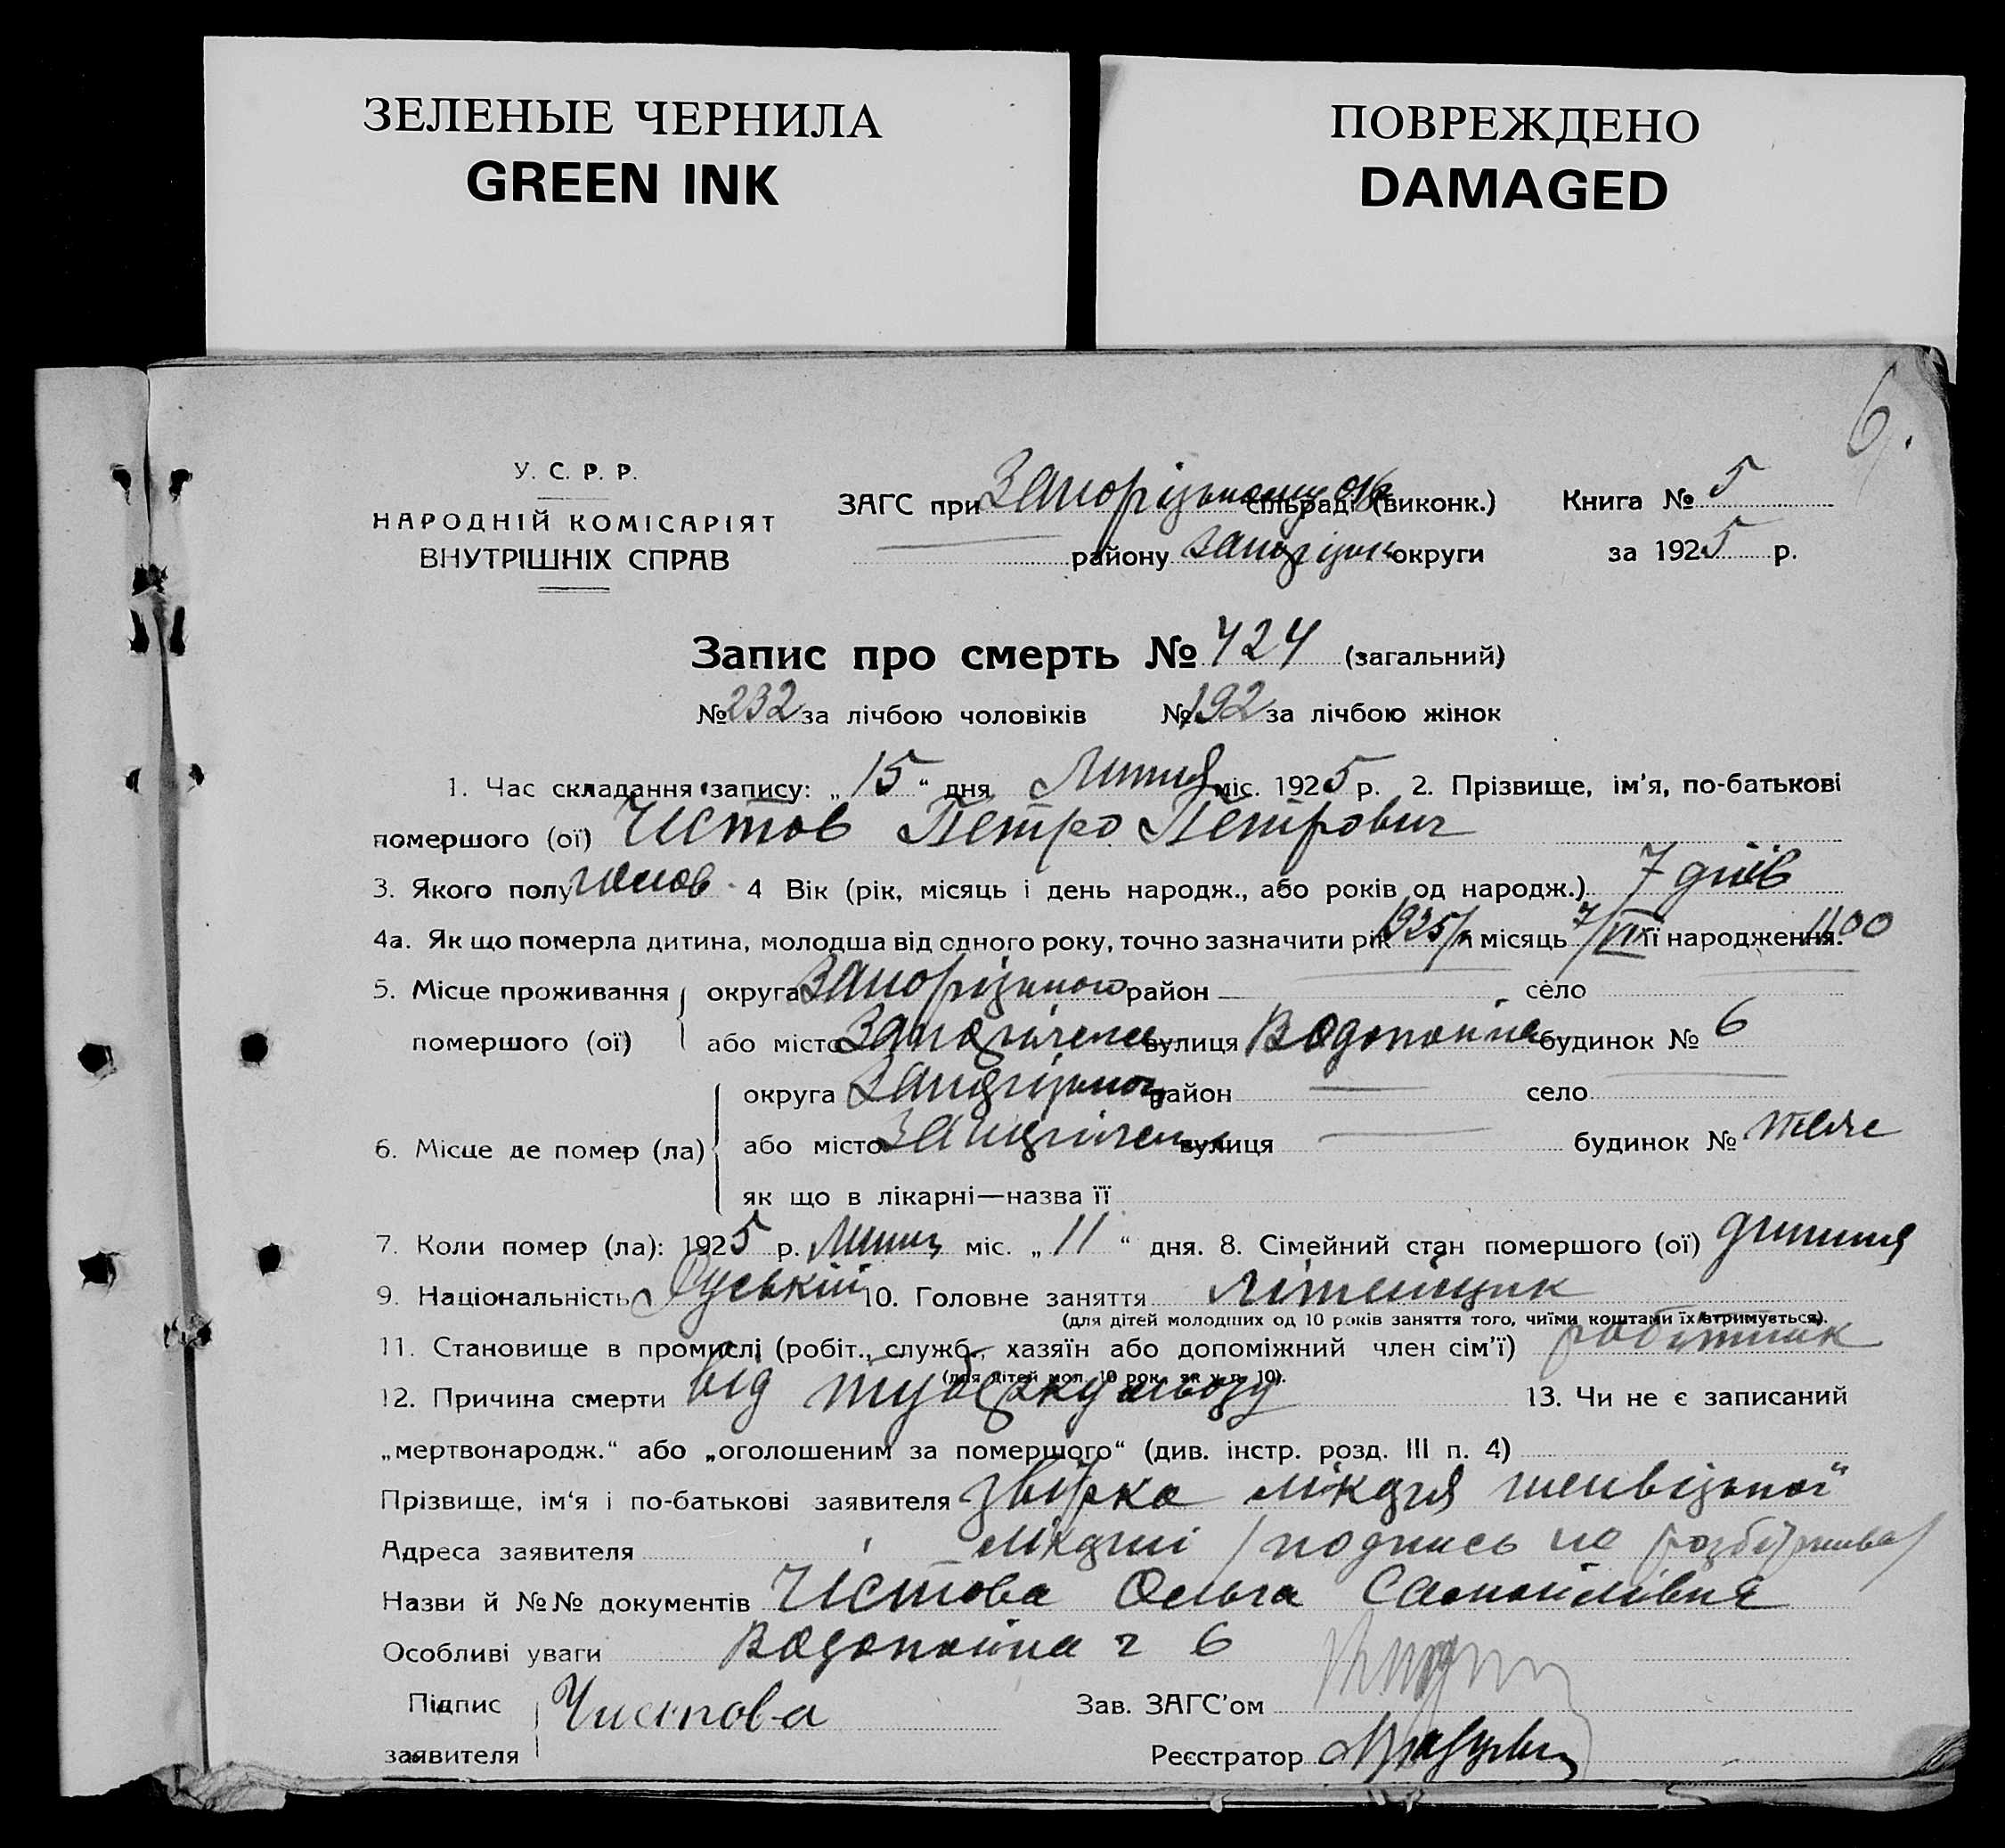 ЗЕЛЕНЫЕ ЧЕРНИЛА
GREEN INK
ПОВРЕЖДЕНО
DAMAGED
6.
У. С. Р. Р.
НАРОДНІЙ КОМІСАРІЯТ
ВНУТРІШНІХ СПРАВ
ЗАГС при Запорізькому сільраді (виконк.) Книга № 5
району Запорізьк округи за 1925 р.
Запис про смерть № 424 (загальний)
№ 232 за лічбою чоловіків № 192 за лічбою жінок
1. Час складання запису: „15“ дня Липня міс. 1925 р. 2. Прізвище, ім'я, по-батькові
помершого (ої) Чистов Петро Петрович
3. Якого полу чолов. 4 Вік (рік, місяць і день народж., або років од народж.) 7 днів
4а. Як що померла дитина, молодша від одного року, точно зазначити рік 1925 місяць 7/VII її народження. 1100
5. Місце проживання округа Запорізького район — село
помершого (ої) або місто Запоріжже вулиця Водопойна будинок № 6
округа Запорізького район — село
6. Місце де помер (ла) або місто Запоріжже вулиця — будинок № теже
як що в лікарні—назва її
7. Коли помер (ла): 1925 р. Липня міс. „11“ дня. 8. Сімейний стан помершого (ої) дитина
9. Національність Руський 10. Головне заняття літейщик
(для дітей молодших од 10 років заняття того, чиїми коштами їх втримується).
11. Становище в промислі (робіт., служб., хазяїн або допоміжний член сім'ї) робітник
(для дітей мол. 10 рок. як у п. 10).
12. Причина смерти від туберкульозу 13. Чи не є записаний
„мертвонародж.“ або „оголошеним за помершого“ (див. інстр. розд. III п. 4)
Прізвище, ім'я і по-батькові заявителя
Адреса заявителя подпись не
Назви й №№ документів Чістова Ольга Самойлівна
Особливі уваги Водопойна 6
Підпис заявителя Чистова Зав. ЗАГС'ом
Реєстратор